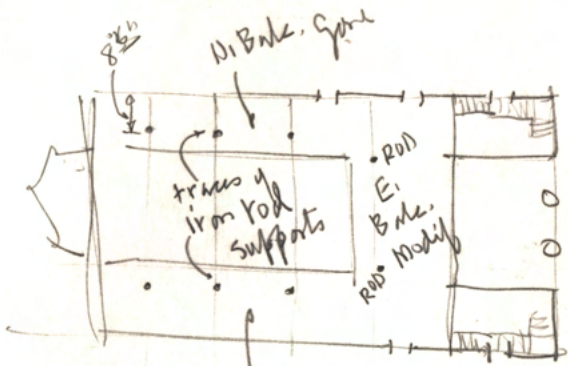 N. Balc. Gone
traces of
iron rod
supports
ROD
E.
Balc.
Modif
ROD